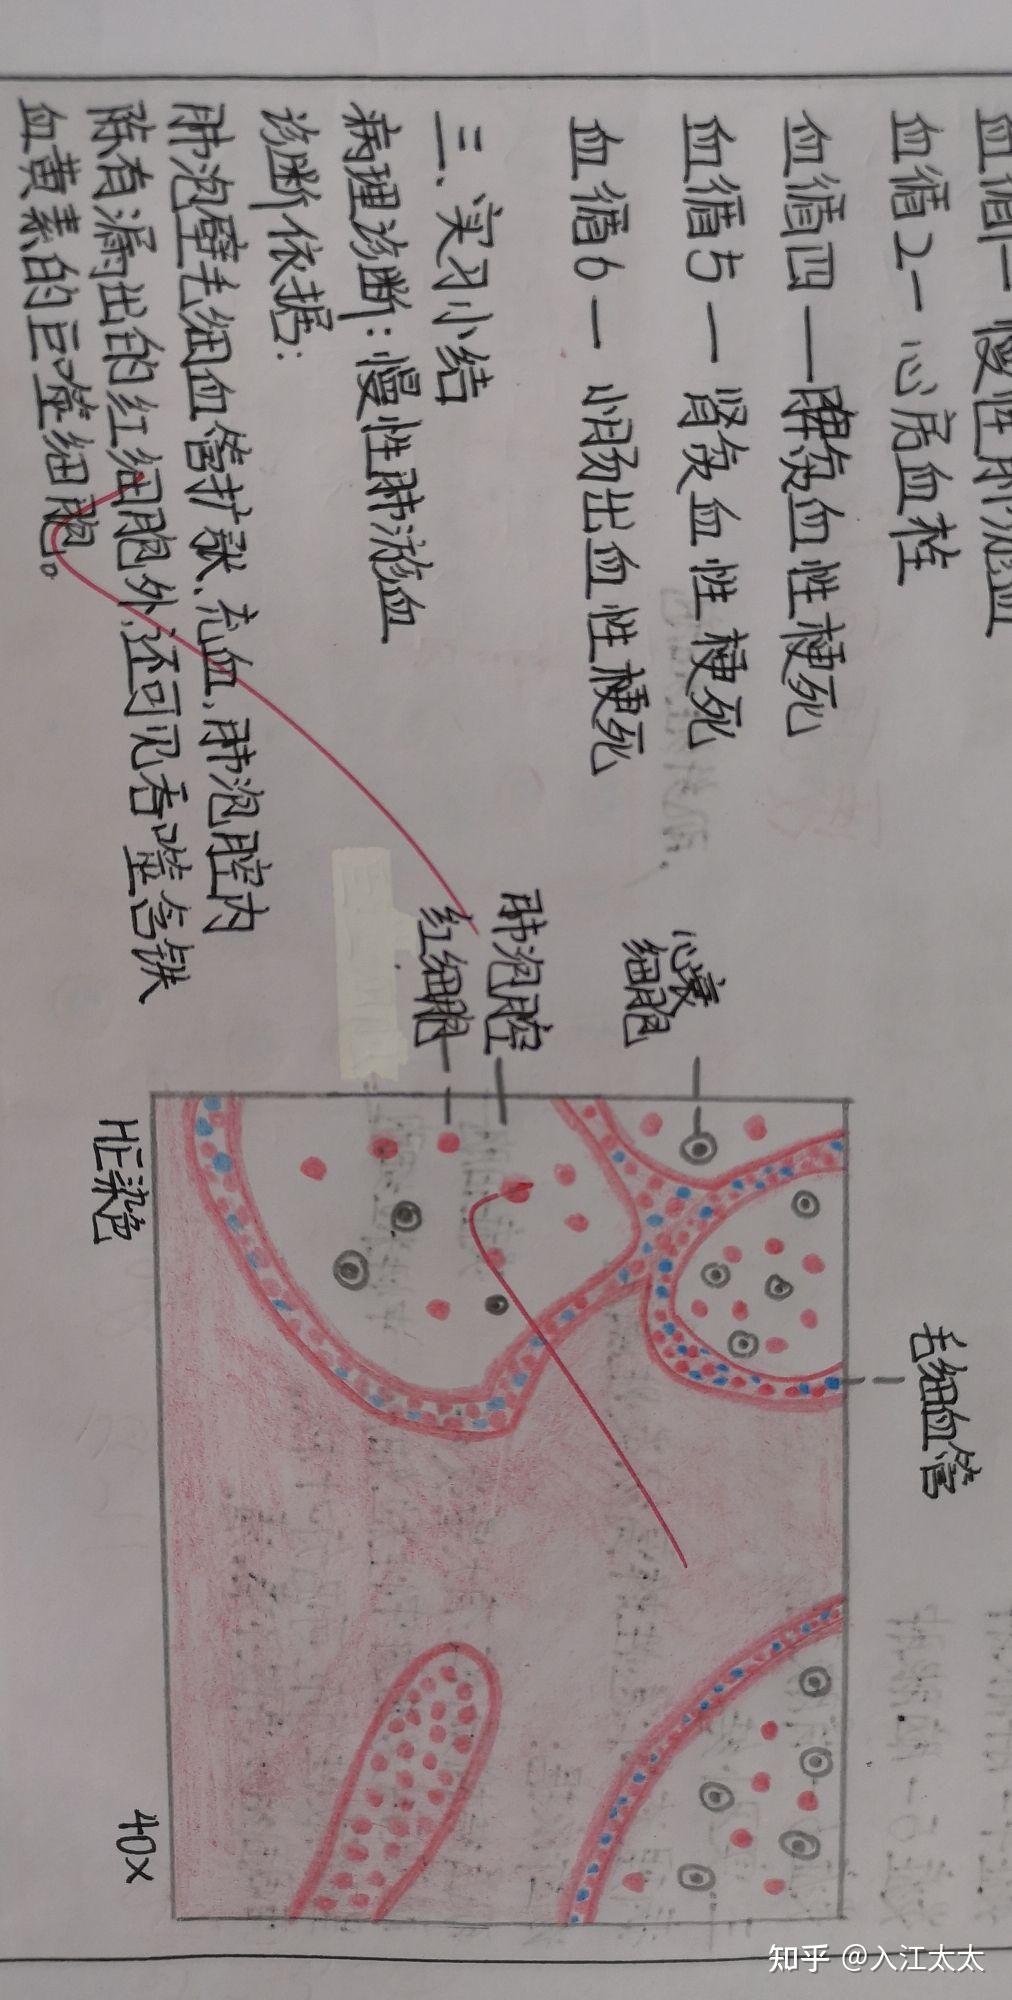 血循一 慢性肺淤血
血循2一 心房血栓
血循四 — 脾贫血性梗死
血循5 一 肾贫血性梗死
血循6 一 小肠出血性梗死
三、实习小结
病理诊断：慢性肺淤血
诊断依据：
肺泡壁毛细血管扩张、充血，肺泡腔内
除有漏出的红细胞外，还可见吞噬含铁
血黄素的巨噬细胞。
毛细血管
心衰
细胞
肺泡腔
红细胞
HE染色
40x
知乎 @入江太太